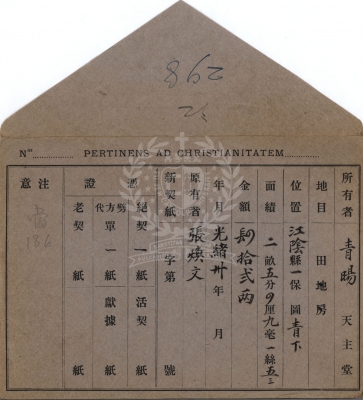 298
2/3
Nus.............. PERTINENS AD CHRISTIANITATEM..............
所有者 青暘 天主堂
地目 田地房
位置 江陰縣一保 圖 青下
面積 二畝五分 厘九毫一絲五
金額 肆拾弍両
年月 光緒卅年 月
原有者 張煥文
新契紙 字第 號
憑證
絕契一紙 活契 紙
劈方代單 一紙 獻據 紙
老契 紙 紙
注意
186